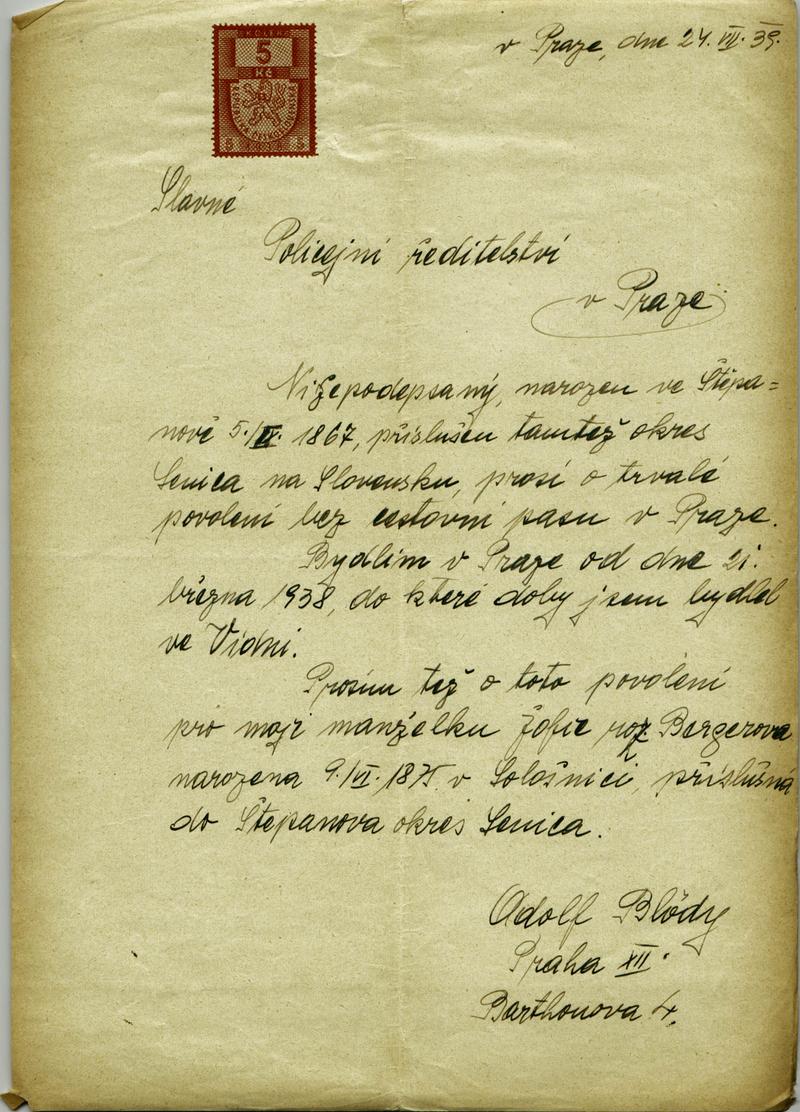 KOLEK
5
Kč
REPUBLIKA ČESKOSLOVENSKÁ
5 5
v Praze, dne 24. VII. 39.
Slavné
Policejní ředitelství
v Praze
Nížepodepsaný, narozen ve Štěpa=
nově 5./ 1867, příslušen tamtéž okres
Senica na Slovensku, prosí o trvalé
povolení bez cestovní pasu v Praze.
Bydlím v Praze od dne 21.
března 1938, do které doby jsem bydlel
ve Vídni.
Prosím též o toto povolení
pro moji manželku Žofie roz. Bergerova
narozena 9./VI. 1875 vOlošnici, příslušná
do Štepanova okres Senica.
Adolf Blödy
Praha XII.
Barthouova 4.